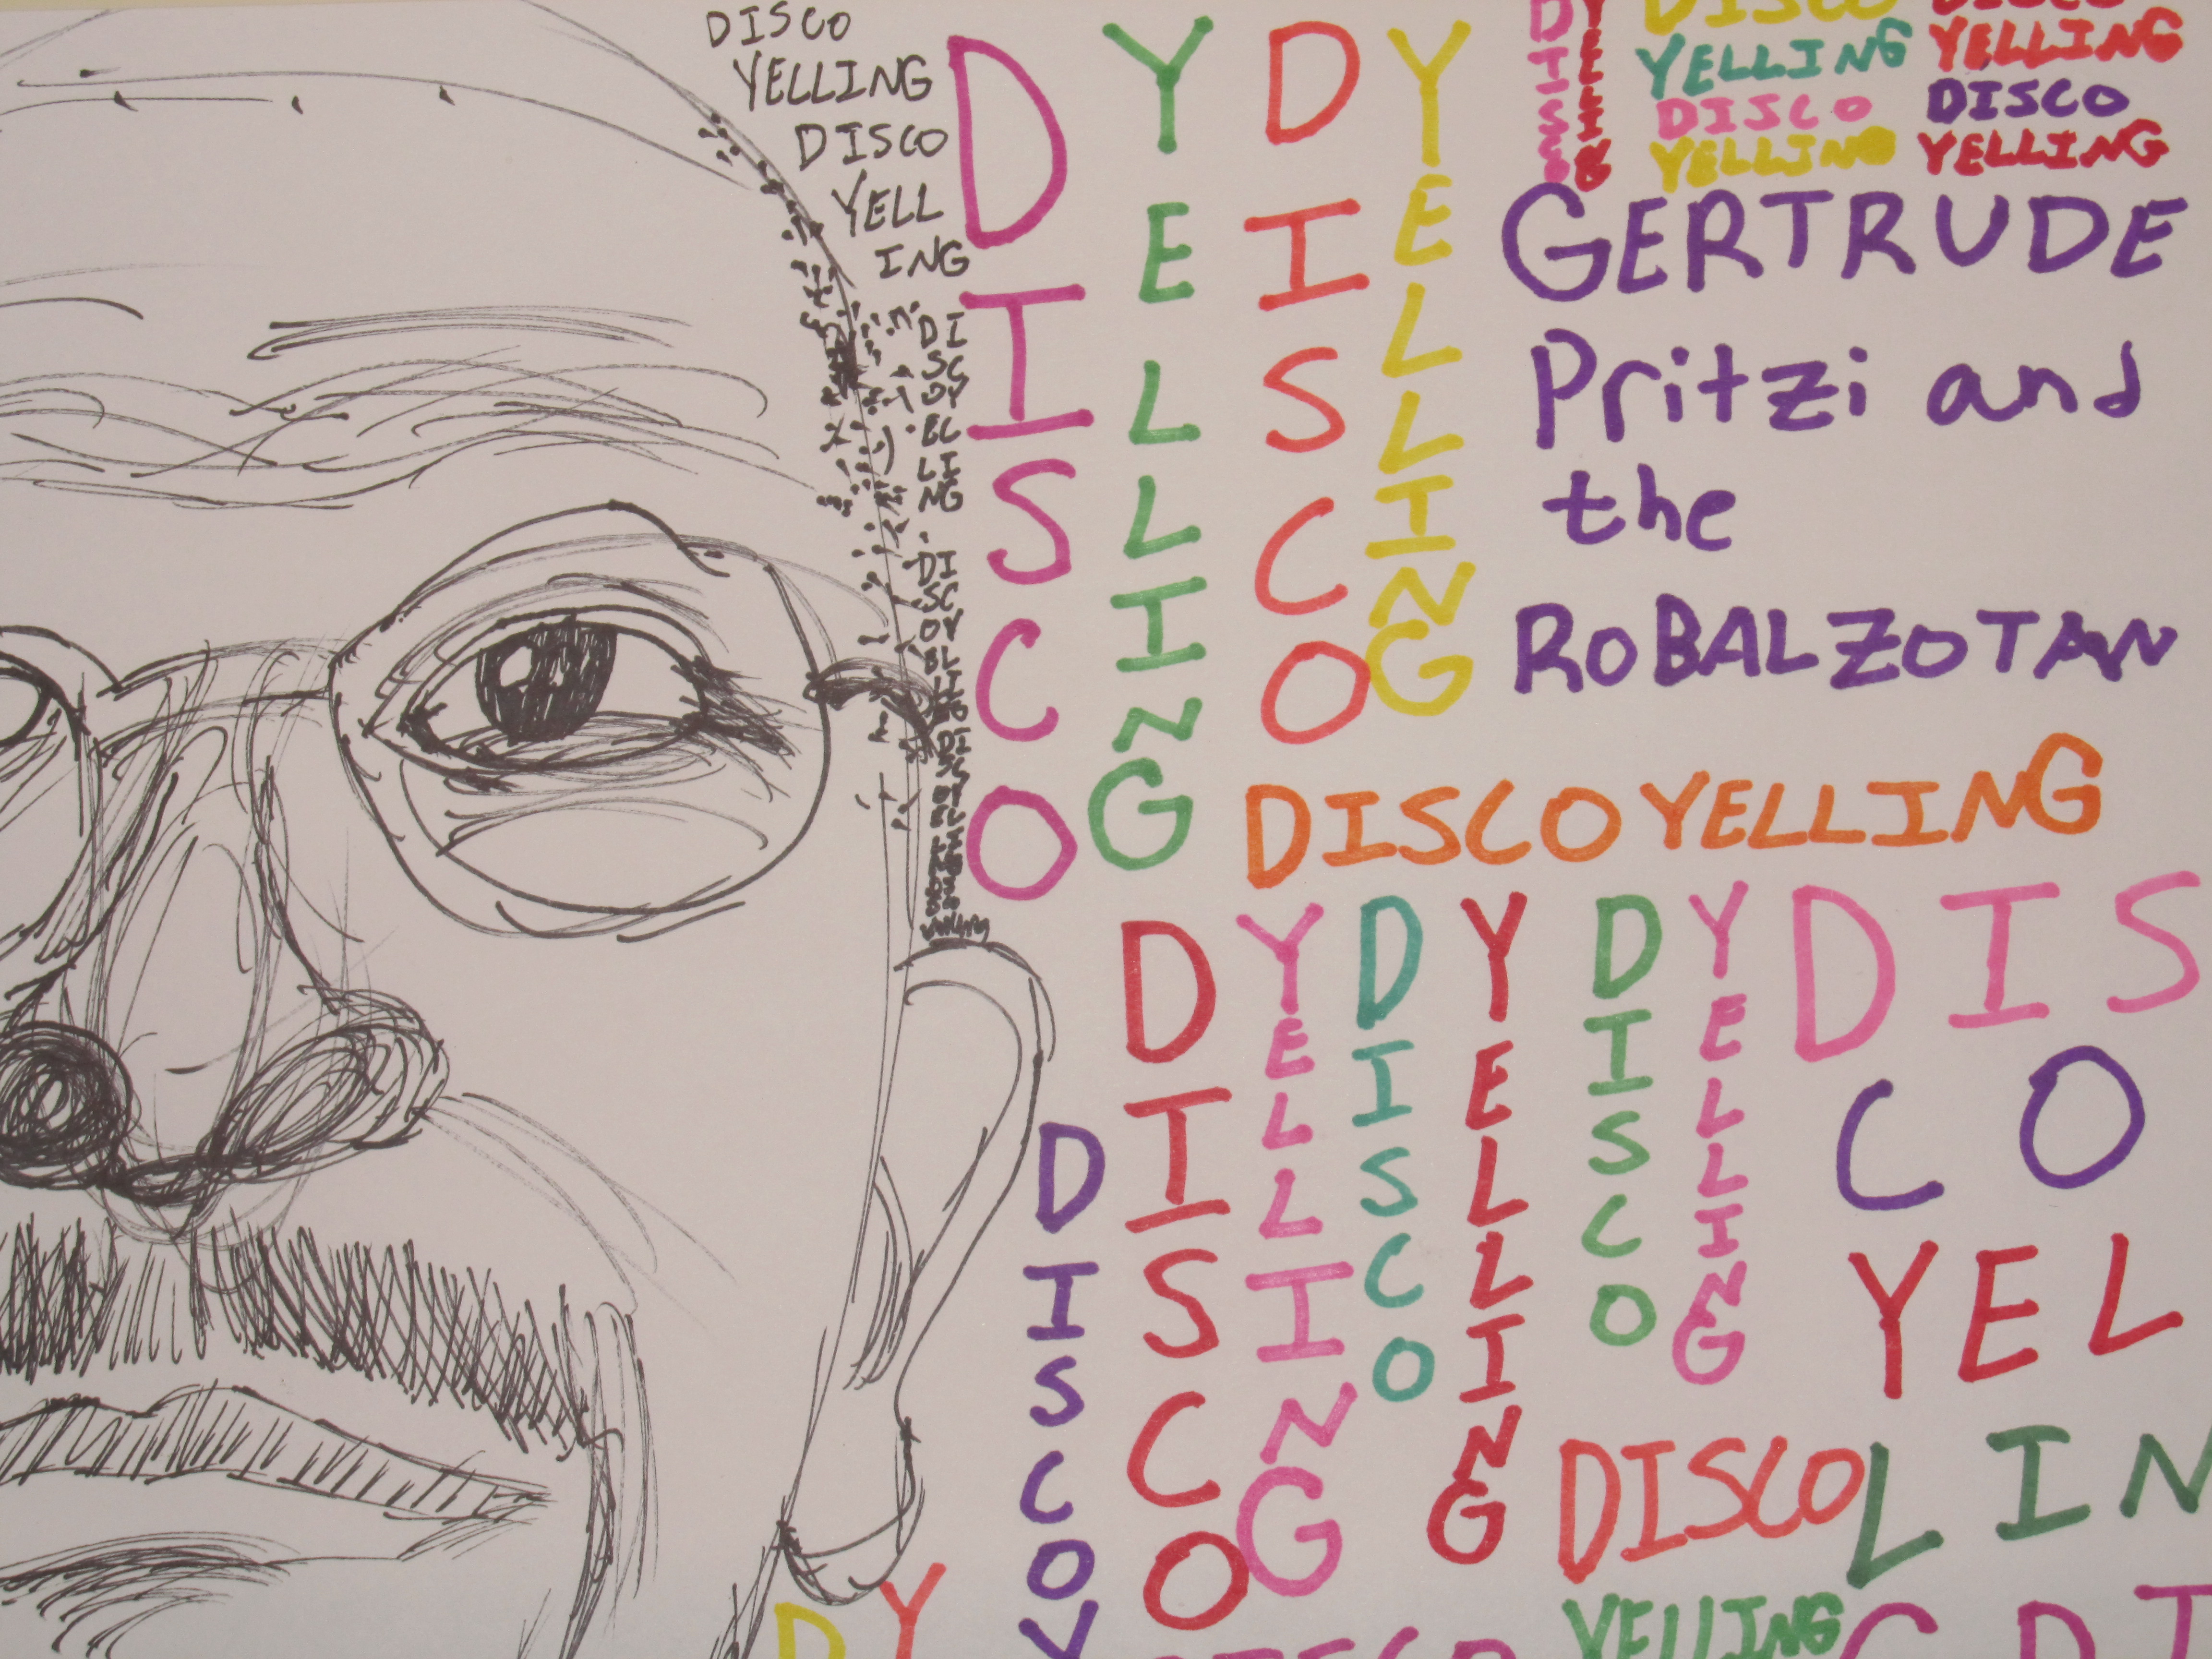 DISCO
YELLING
DISCO
YELL
ING
DI
SC
OY
EL
LI
NG
DI
SC
OY
EL
LI
DISCO
YELLING
DISCO
YELLING
DISCO
YELLING
DISCO
YELLING
DISCO
YELLING
DISCO
YELLING
GERTRUDE
Pritzi and
the
ROBALZOTAN
DISCO YELLING
DISCO
DISCO
YELLING
DISCO
YELLING
DISCO
YELLING
DIS
CO
YEL
LIN
DISCO
YELLING
DY
Y